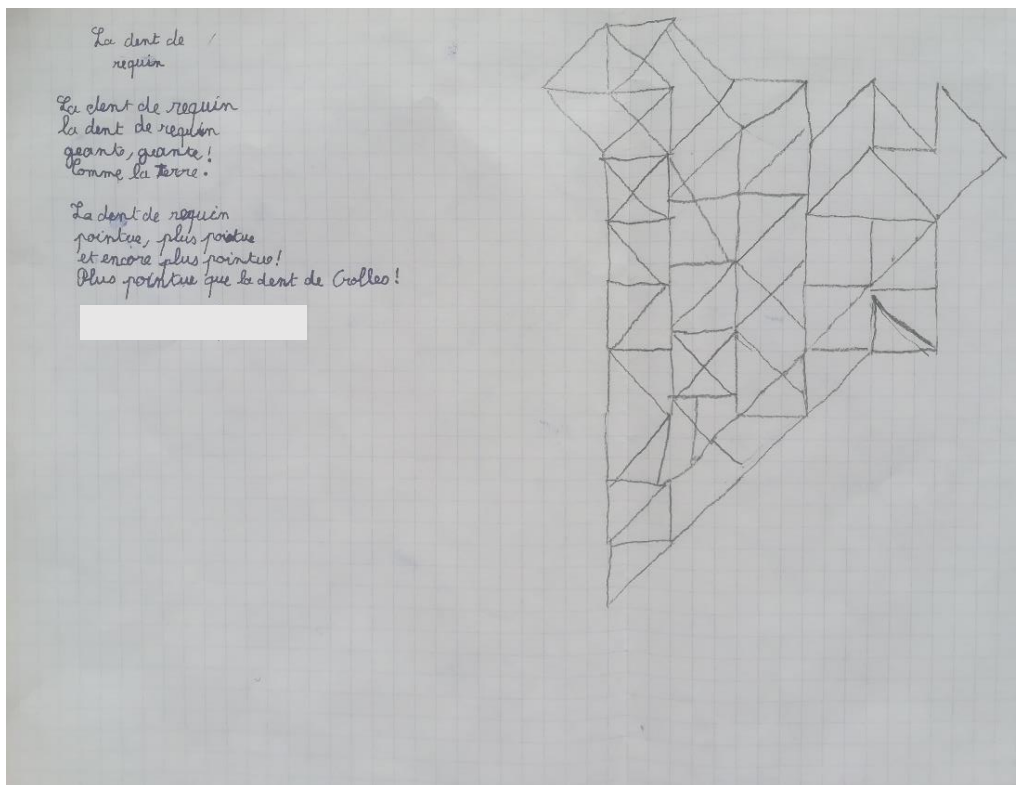 La dent de
requin
La dent de requin
la dent de requin
geante, geante !
Comme la terre.
La dent de requin
pointue, plus pointue
et encore plus pointue !
Plus pointue que la dent de Crolles !